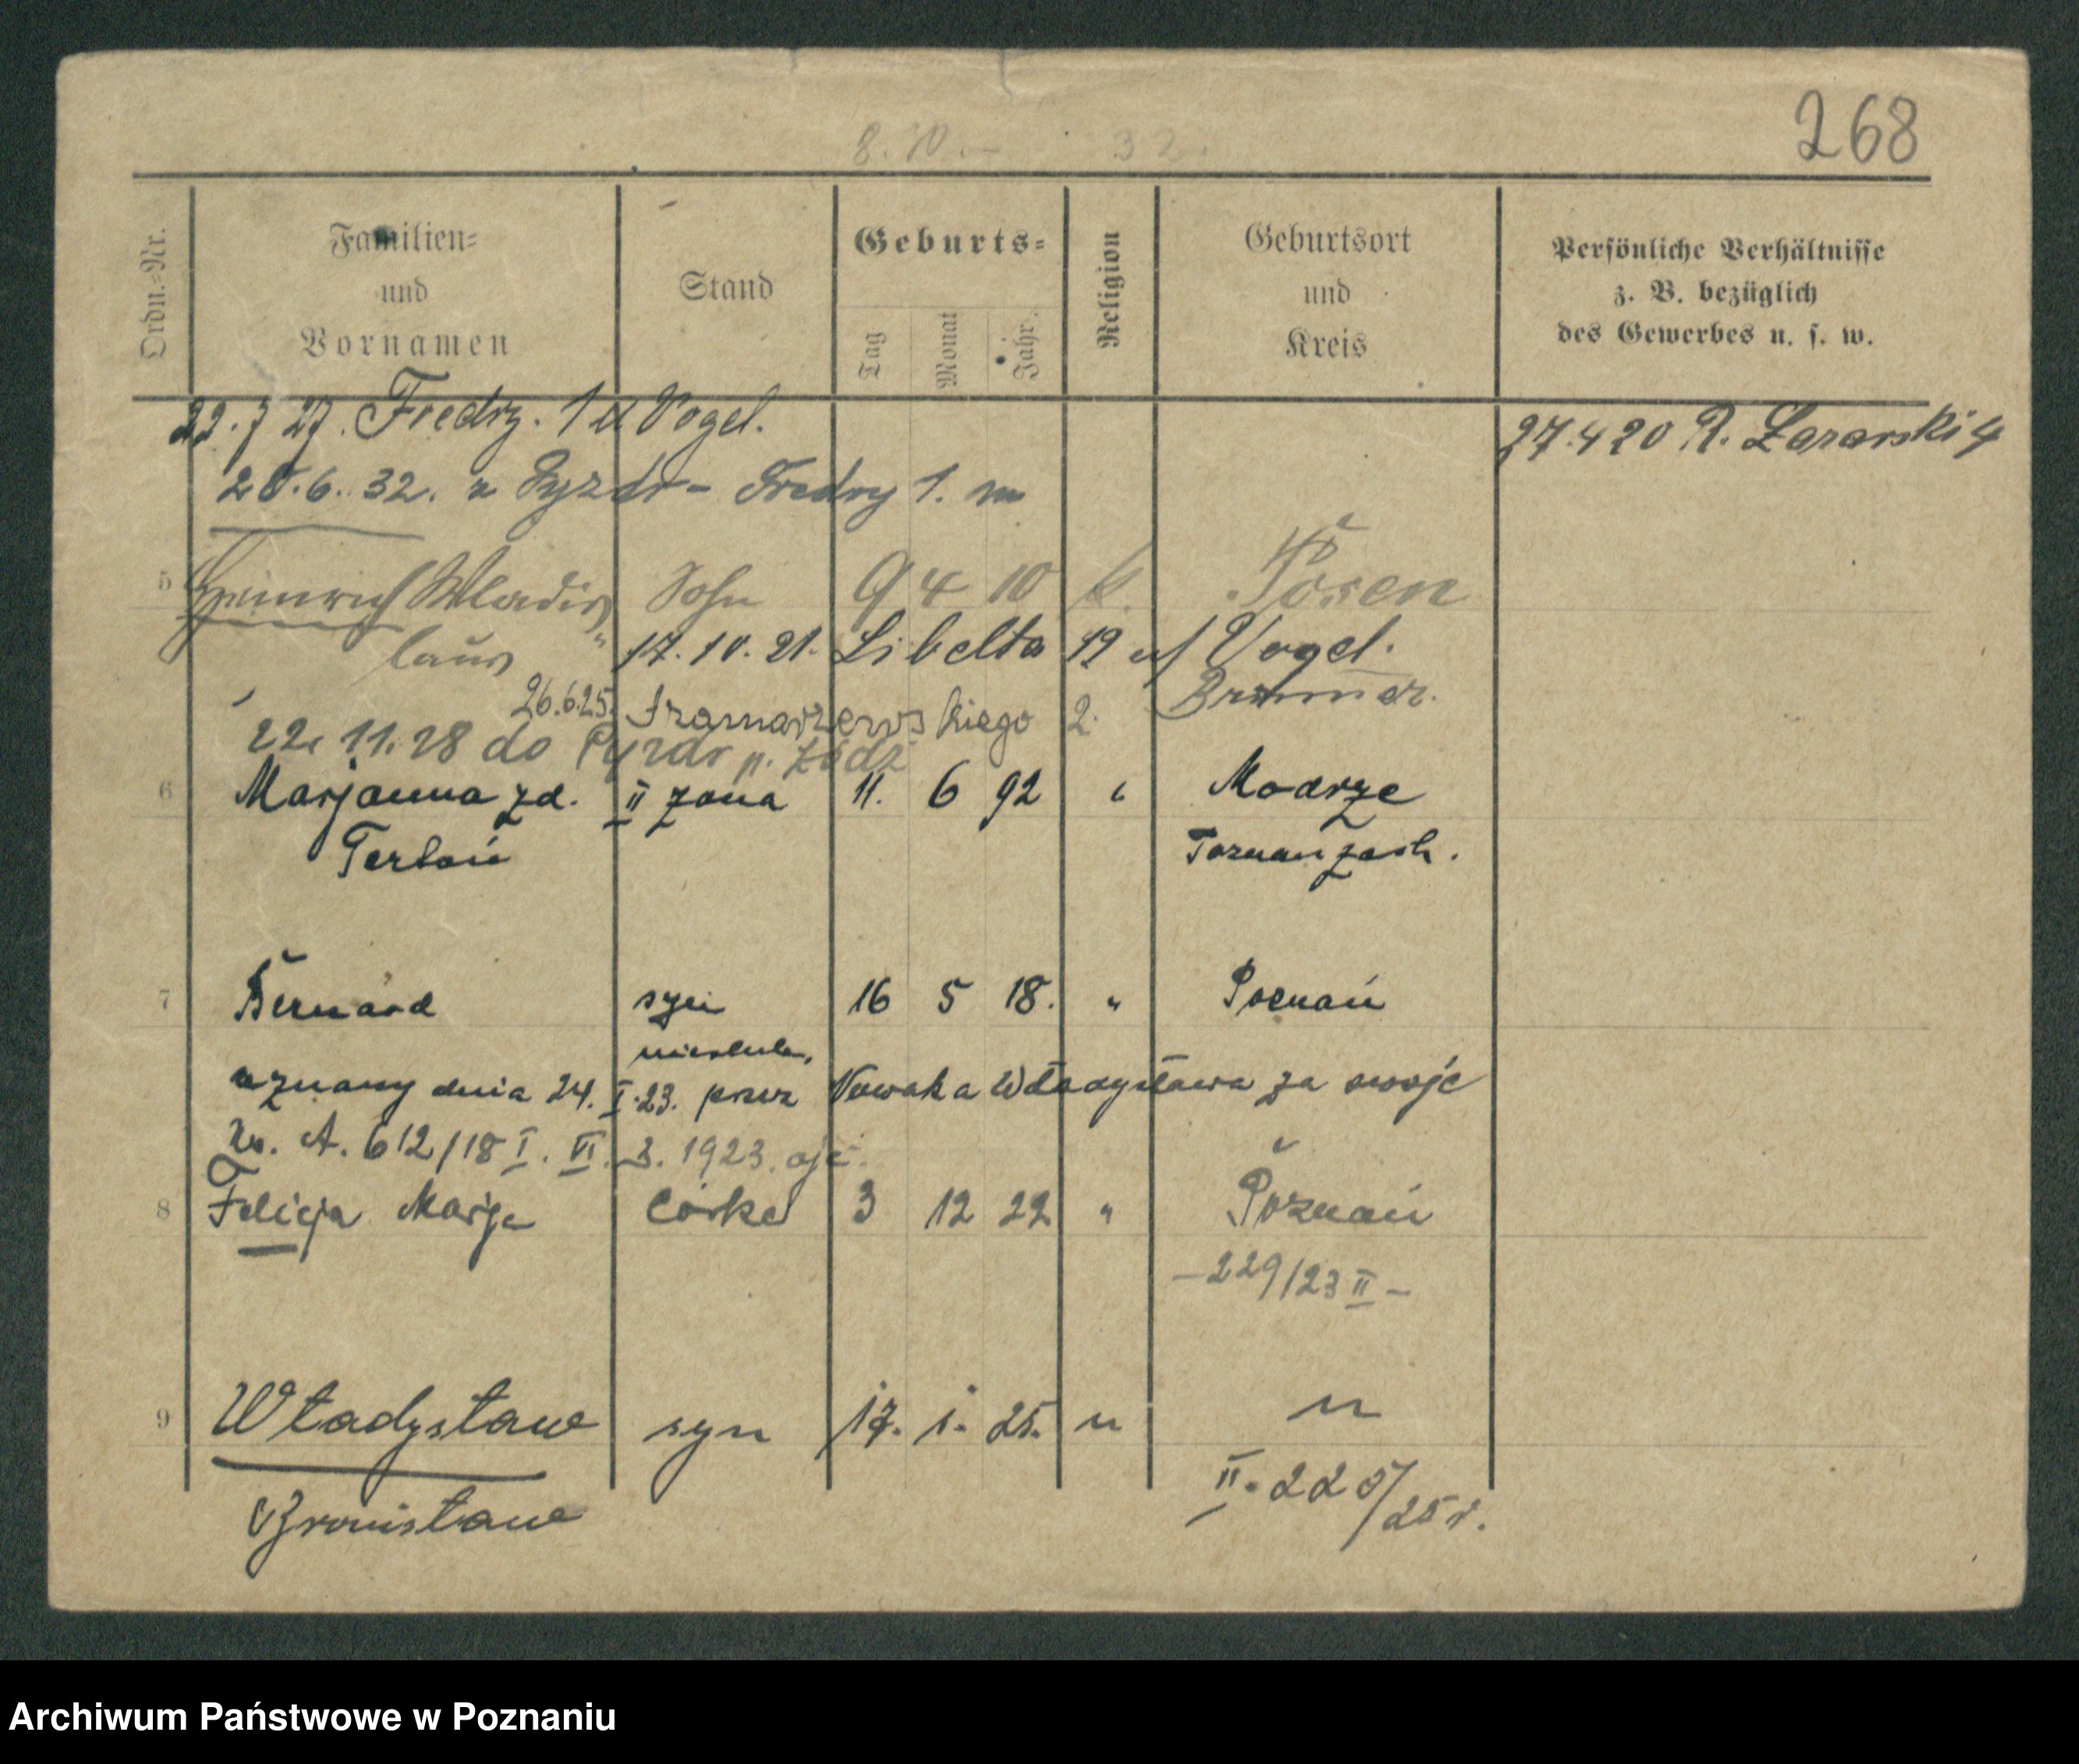 268
8.10.– 32
Ordn.-Nr.
Familien-
und
Vornamen
Stand
Geburts-
Tag
Monat
Jahr.
Religion
Geburtsort
und
Kreis
Persönliche Verhältnisse
z. B. bezüglich
des Gewerbes u. s. w.
22.7 27. Fredry. 1 u Vogel.
27.4 20 R. 4
.6. 32. Fredry 1. m
5 Heinrich Wladis Sohn 9 4 10 k. Posen
laus " 17.10.21. Libelta 12 Vogel.
26.6.25. Szamarzewskiego 2.
22. 11. 28 do Pyzdr p. Łódź
6 Marjanna zd. II żona 11. 6 92 " Modrze
Poznań zach.
7 Bernard syn 16 5 18. " Poznań
nieślub.
uznany dnia 24. I.23. przez Nowaka Władysława za swoje
A. 612/18 I. VI. 3. 1923.
8 Felicja Marja córka 3 12 22 " Poznań
– 229/23 II –
9 Władysław syn 17. 1. 25. " "
Bronisław
II. 225/25 r.
Archiwum Państwowe w Poznaniu